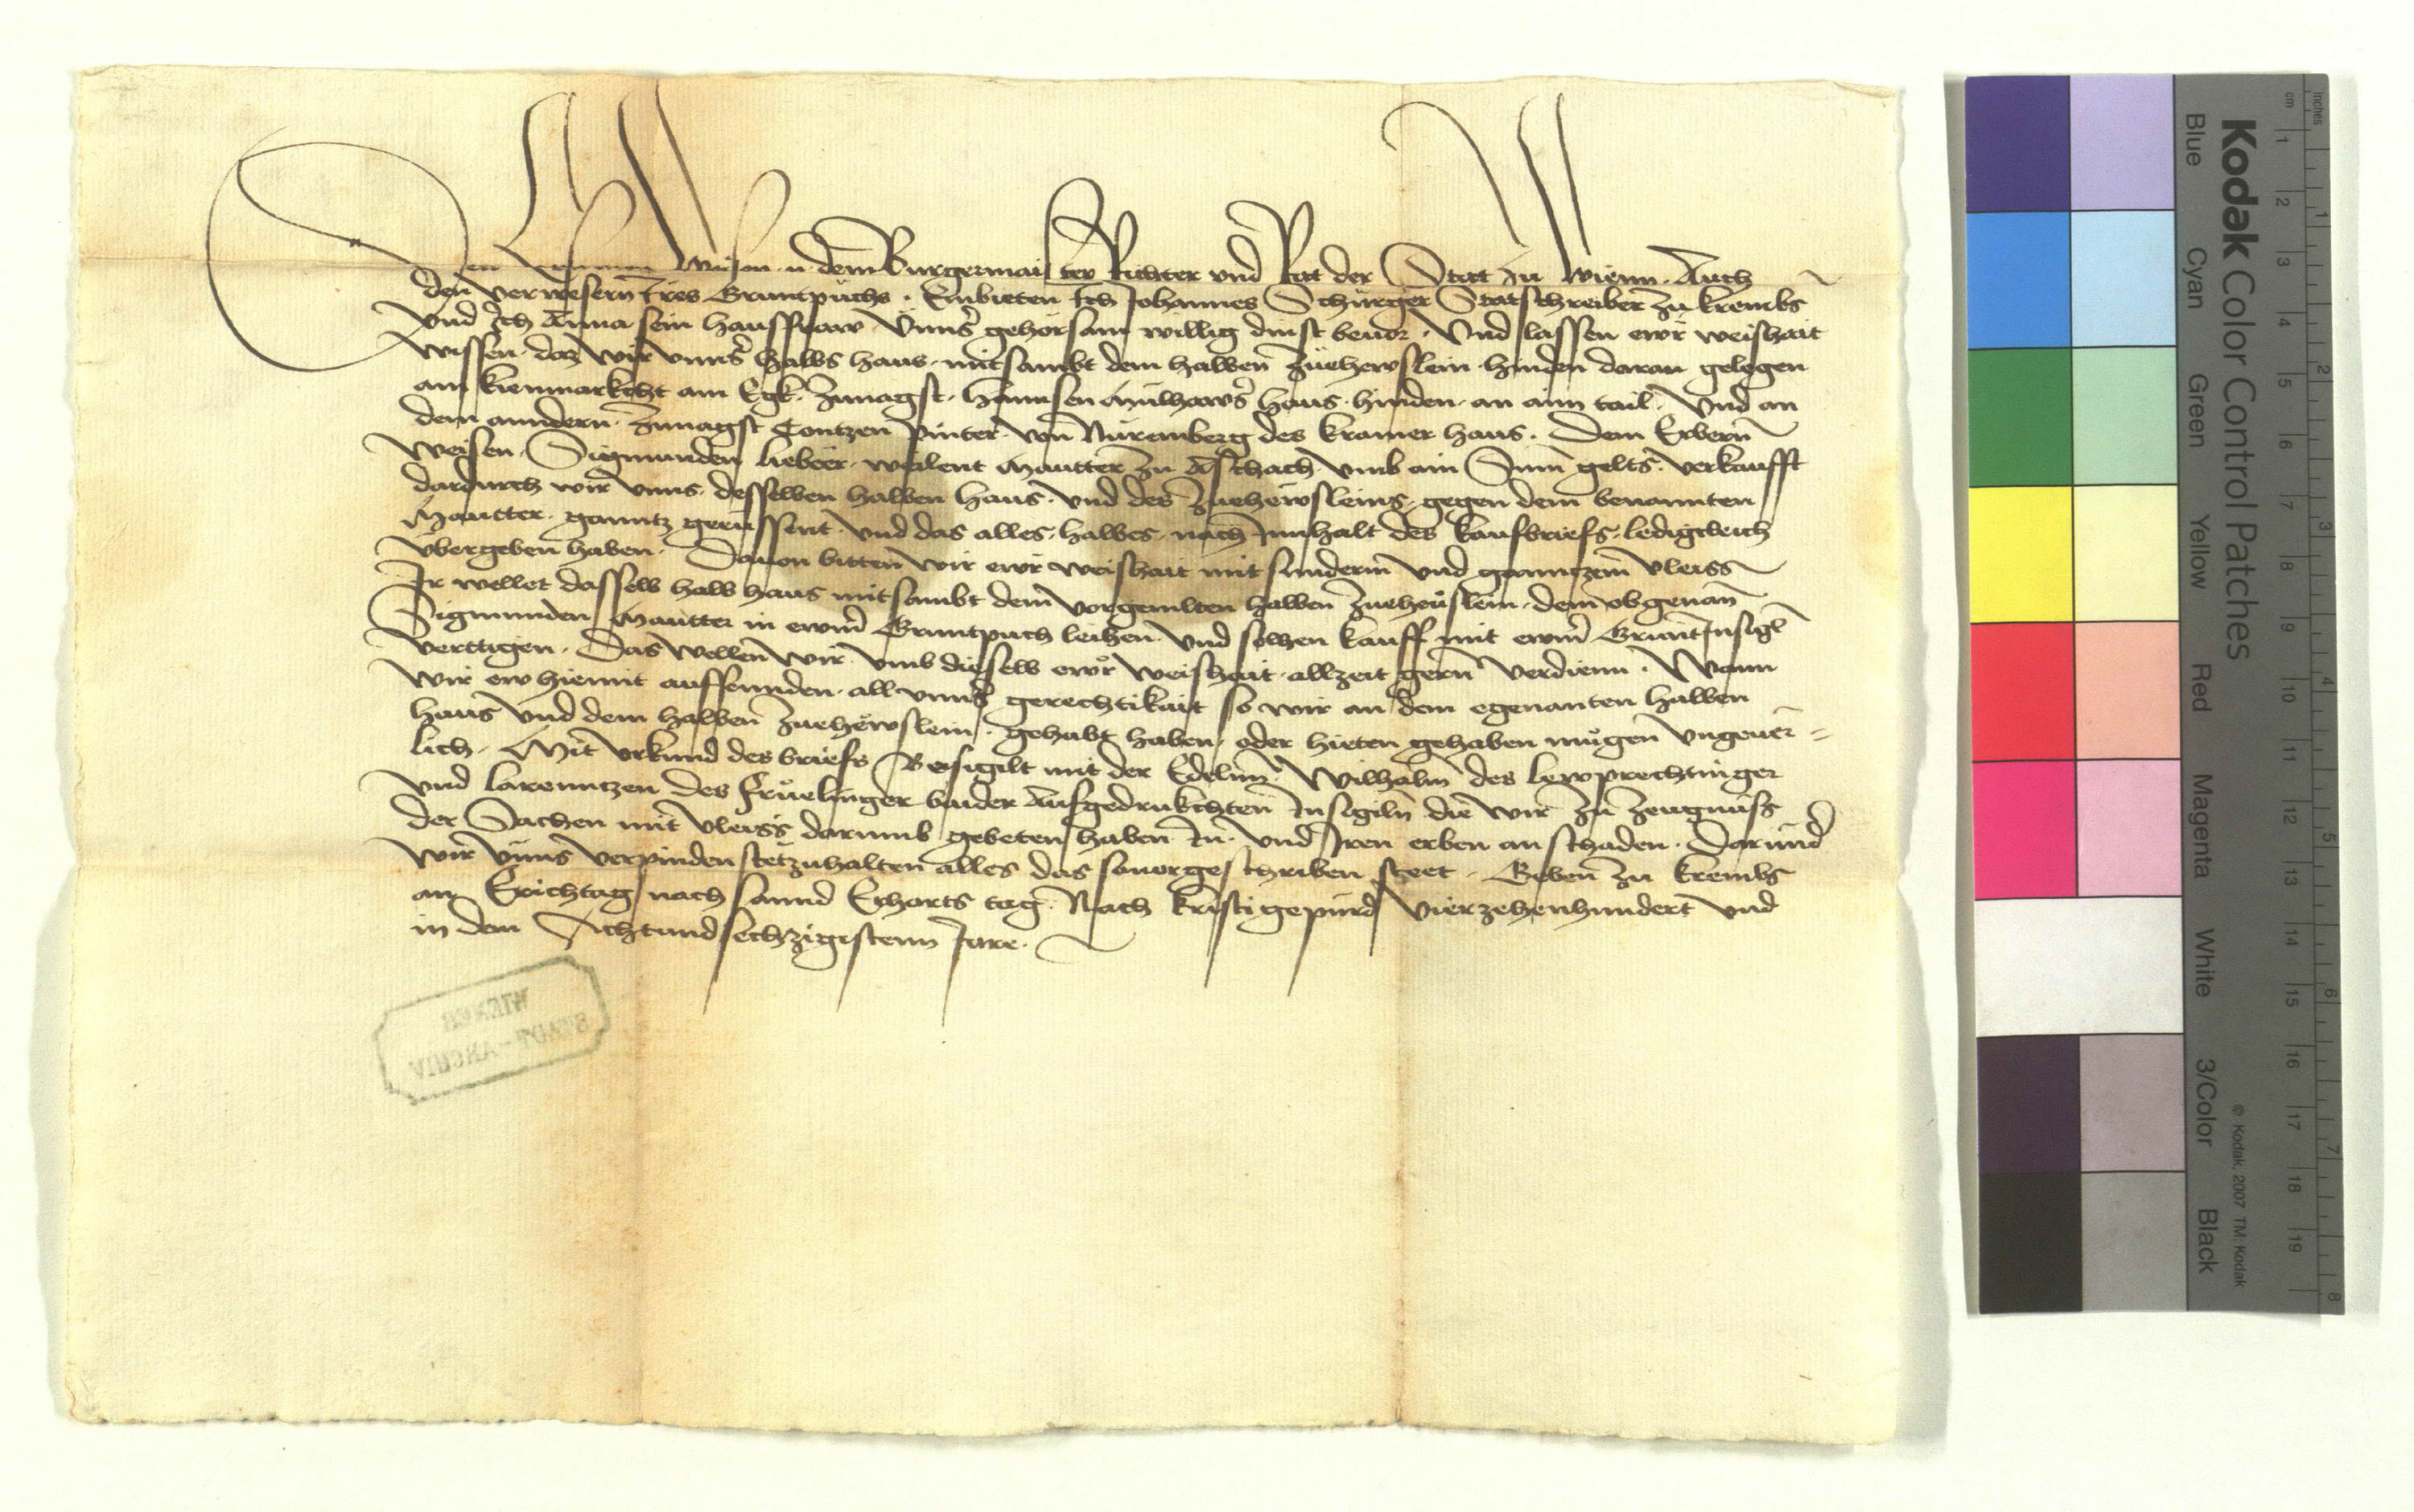 Den Weisen n dem Burgermaister Richter vnd Rat der Stat zu Wienn. Auch
den verwesern Ires Gruntpuchs. Embieten Ich Johannes Schurger Statschreiber zu krembs
Vnd Ich Anna sein hausfraw. Vnnser gehorsam willig dinst beuor. Vnd lassen ewr weishait
wissen. daz wir vnnser halbs haus. mitsambt dem halben Zuehewslein. hinden daran gelegen
am kienmarkcht am Egk. zunagst. Hannsen Mulhawser haus. hinden. an aim tail. Vnd an
dem anndern. zunagst Contzen pinter. von Nuremberg des kramer haus. Dem Erbern
Weisen. Sigmunden lieber. weilent Mautter zu Aschach. vmb ain Sum gelts. verkaufft
dardurch wir vnns. desselben halben haus. vnd des Zuehewsleins. gegen dem benannten
Mautter. ganntz geeussent. vnd das alles. halbes. nach Innhalt des kaufbriefs. ledigkleich
vbergeben haben. Dauon bitten wir ewr weishait mit sunderm vnd ganntzem vleiss
Ir wellet dasselb halb haus mitsambt dem vorgemelten halben Zuehewslein. dem obgenan
Sigmunden Mautter in ewrm Gruntpuch leihen. vnd solhen kauff mit ewrm Grunt Insigl
verttigen. Das wellen wir. vmb dieselb ewr weishait. allzeit gern verdienn. Wann
wir ew hiemit aufsennden. all vnnser gerechtikait so wir an dem egenanten halben
haus vnd dem halben Zuehewslein. gehabt haben. oder hieten gehaben mugen vngeuer=
lich. Mit vrkund des briefs Besigilt mit der Edelnn. Wilhalm des lewprechtinger
vnd larenntzen des fruelinger baider Aufgedrukchten Insigiln die wir zu zeugnuss
der Sachen mit vleiss darumb gebeten haben. In. vnd Iren erben an schaden. Darund
wir vnns verpinden stetzuhalten alles das souorgeschriben steet. Geben zu krembs
an Erichtag nach sannd Erharts tag. Nach kristi gepurd vierzehenhundert vnd
in dem Achtundsechzigistenn Jare.
WIENER
STADT-ARCHIV
Kodak Color Control Patches
Blue Cyan Green Yellow Red Magenta White 3/Color Black
© Kodak, 2007 TM: Kodak
inches 1 2 3 4 5 6 7 8
cm 1 2 3 4 5 6 7 8 9 10 11 12 13 14 15 16 17 18 19